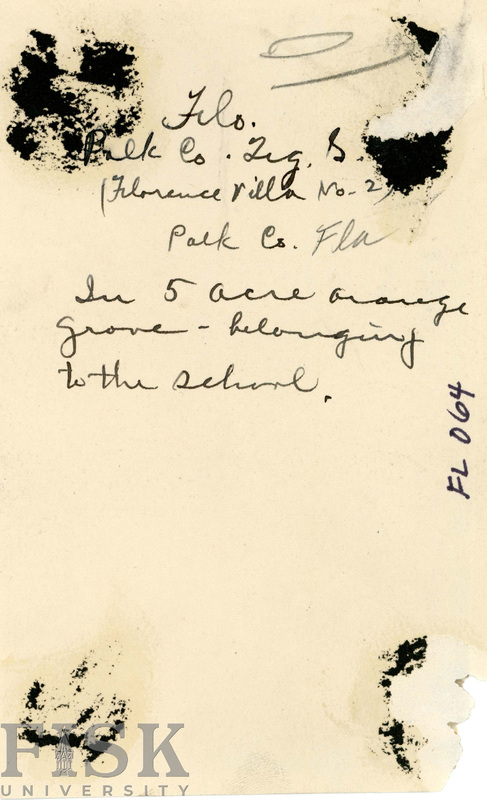 Flo.
Polk Co. Trg. S.
(Florence Villa No. 2)
Polk Co. Fla
In 5 acre orange
grove - belonging
to the school.
FL 064
FISK
UNIVERSITY